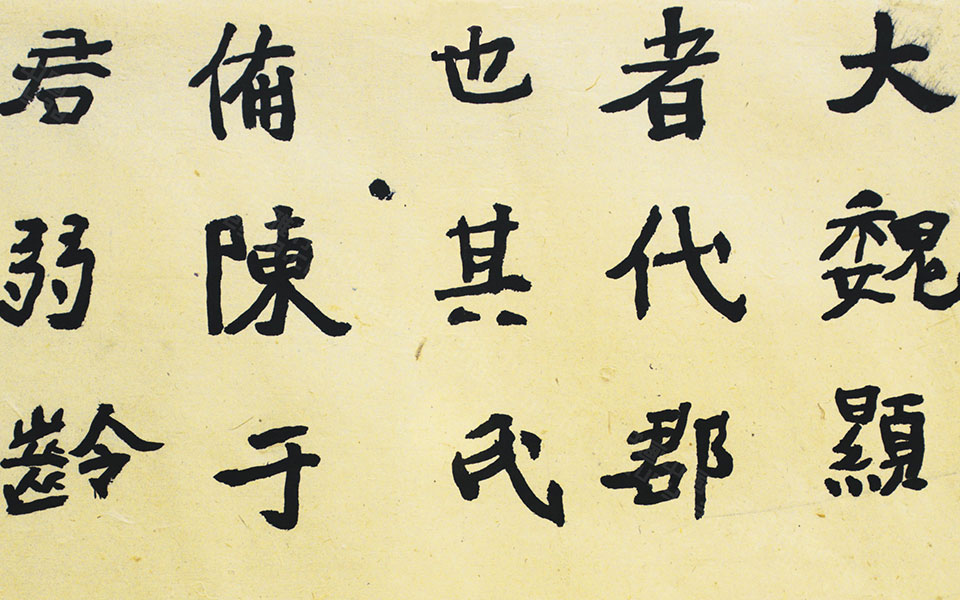 大魏顯
者代郡
也其氏
備陳于
君弱齡